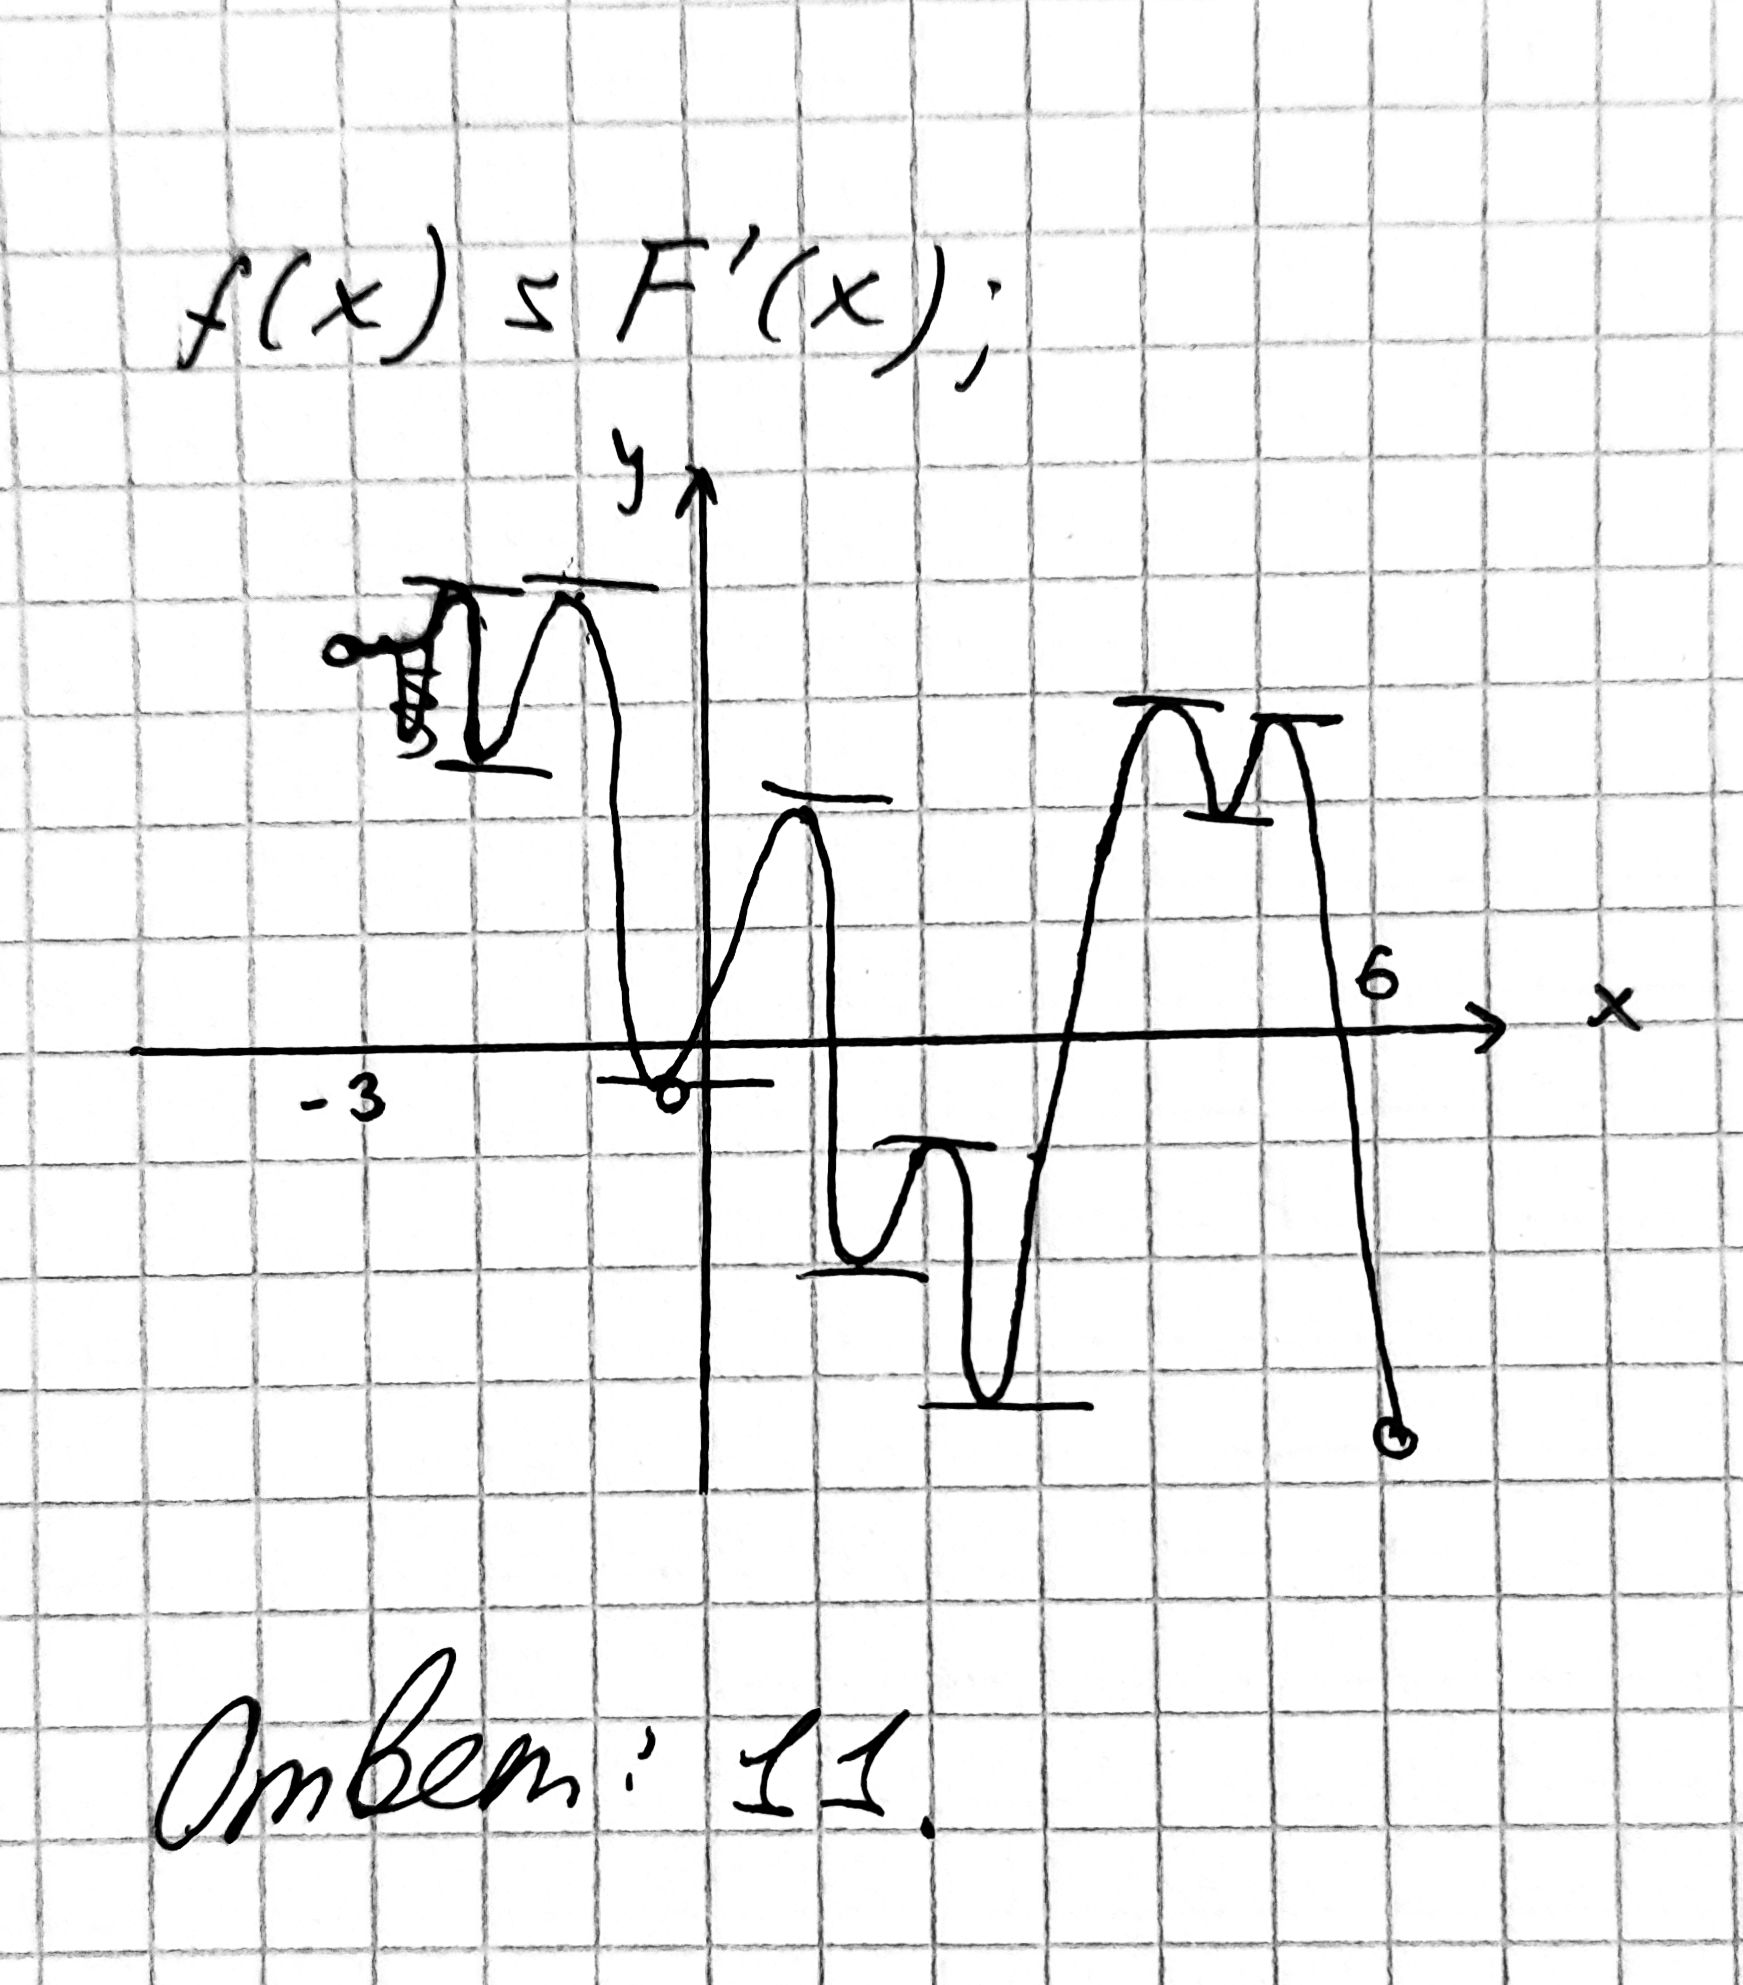 f(x) = F'(x);
y
6
x
-3
Ответ: 11.